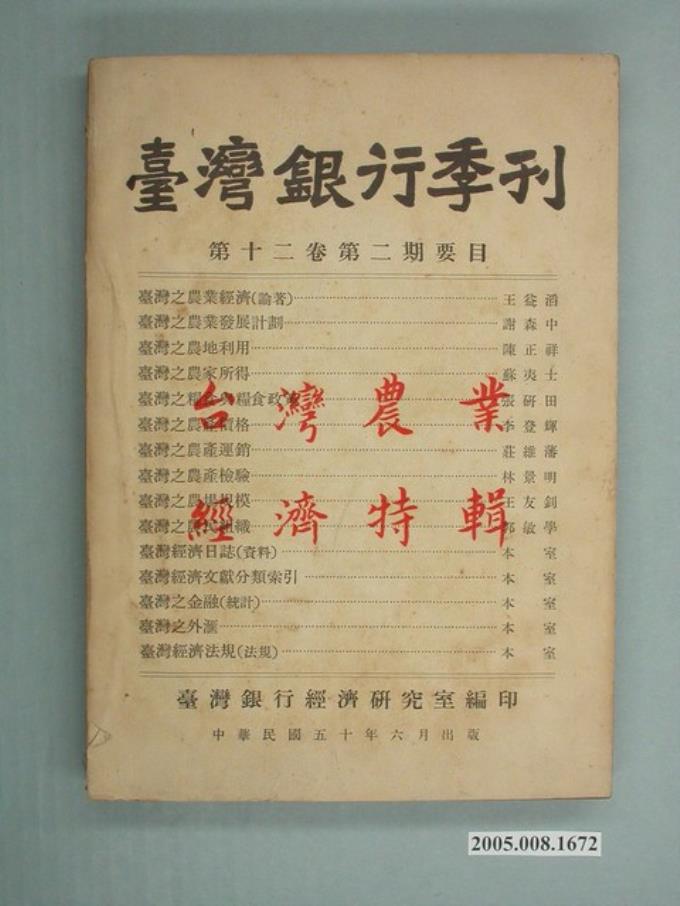 臺灣銀行季刊
第十二卷第二期要目
臺灣之農業經濟(論著) 王益滔
臺灣之農業發展計劃 謝森中
臺灣之農地利用 陳正祥
臺灣之農家所得 蘇夷士
臺灣之糧食與糧食政策 張研田
臺灣之農產價格 李登輝
臺灣之農產運銷 莊維藩
臺灣之農產檢驗 林景明
臺灣之農場規模 王友釗
臺灣之農民組織 郭敏學
臺灣經濟日誌(資料) 本室
臺灣經濟文獻分類索引 本室
臺灣之金融(統計) 本室
臺灣之外滙 本室
臺灣經濟法規(法規) 本室
台灣農業
經濟特輯
臺灣銀行經濟研究室編印
中華民國五十年六月出版
2005.008.1672